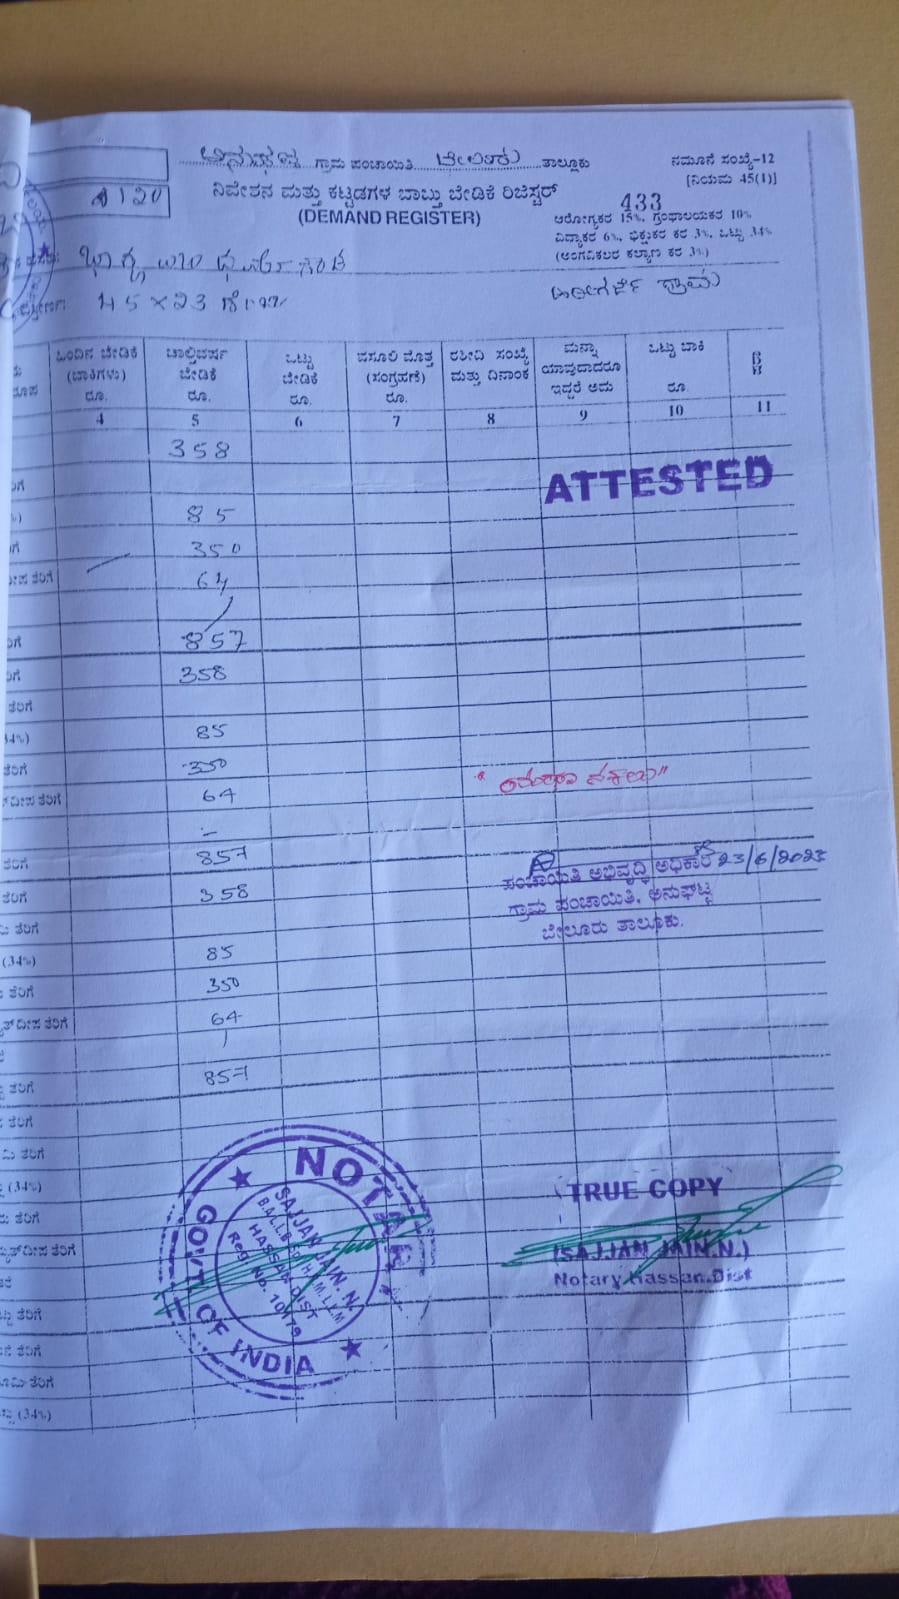 ಅನುಘಟ್ಟ ಗ್ರಾಮ ಪಂಚಾಯಿತಿ ಬೇಲೂರು ತಾಲ್ಲೂಕು
ನಮೂನೆ ಸಂಖ್ಯೆ-12
[ನಿಯಮ 45(1)]
ನಿವೇಶನ ಮತ್ತು ಕಟ್ಟಡಗಳ ಬಾಬ್ತು ಬೇಡಿಕೆ ರಿಜಿಸ್ಟರ್
(DEMAND REGISTER)
433
ಆರೋಗ್ಯಕರ 15%, ಗ್ರಂಥಾಲಯಕರ 10%
ವಿದ್ಯಾಕರ 6%, ಭಿಕ್ಷುಕರ ಕರ 3%, ಒಟ್ಟು 34%
(ಅಂಗವಿಕಲರ ಕಲ್ಯಾಣ ಕರ 3%)
120
ಭಾಗ್ಯ
ಗ್ರಾಮ
45×23
ಹಿಂದಿನ ಬೇಡಿಕೆ (ಬಾಕಿಗಳು) ರೂ.
ಚಾಲ್ತಿವರ್ಷ ಬೇಡಿಕೆ ರೂ.
ಒಟ್ಟು ಬೇಡಿಕೆ ರೂ.
ವಸೂಲಿ ಮೊತ್ತ (ಸಂಗ್ರಹಣೆ) ರೂ.
ರಶೀದಿ ಸಂಖ್ಯೆ ಮತ್ತು ದಿನಾಂಕ
ಮನ್ನಾ ಯಾವುದಾದರೂ ಇದ್ದರೆ ಅದು
ಒಟ್ಟು ಬಾಕಿ ರೂ.
4 5 6 7 8 9 10 11
358
ATTESTED
85
350
ದೀಪ ತೆರಿಗೆ 64
857
358
ತೆರಿಗೆ
34%) 85
ತೆರಿಗೆ 350
ದೀಪ ತೆರಿಗೆ 64
ತೆರಿಗೆ 857
ತೆರಿಗೆ 358
23/6/2023
ಪಂಚಾಯಿತಿ ಅಭಿವೃದ್ಧಿ ಅಧಿಕಾರಿ
ಗ್ರಾಮ ಪಂಚಾಯಿತಿ, ಅನುಘಟ್ಟ
ಬೇಲೂರು ತಾಲೂಕು.
ತೆರಿಗೆ
(34%) 85
ತೆರಿಗೆ 350
ದೀಪ ತೆರಿಗೆ 64
ತೆರಿಗೆ 857
ತೆರಿಗೆ
ತೆರಿಗೆ
(34%)
ತೆರಿಗೆ
ದೀಪ ತೆರಿಗೆ
ತೆರಿಗೆ
ತೆರಿಗೆ
ತೆರಿಗೆ
(34%)
NOTARY
GOVT. OF INDIA
SAJJAN JAIN. N.
HASSAN DIST
Reg. No. 10179
TRUE COPY
(SAJJAN JAIN.N.)
Notary Hassan Dist